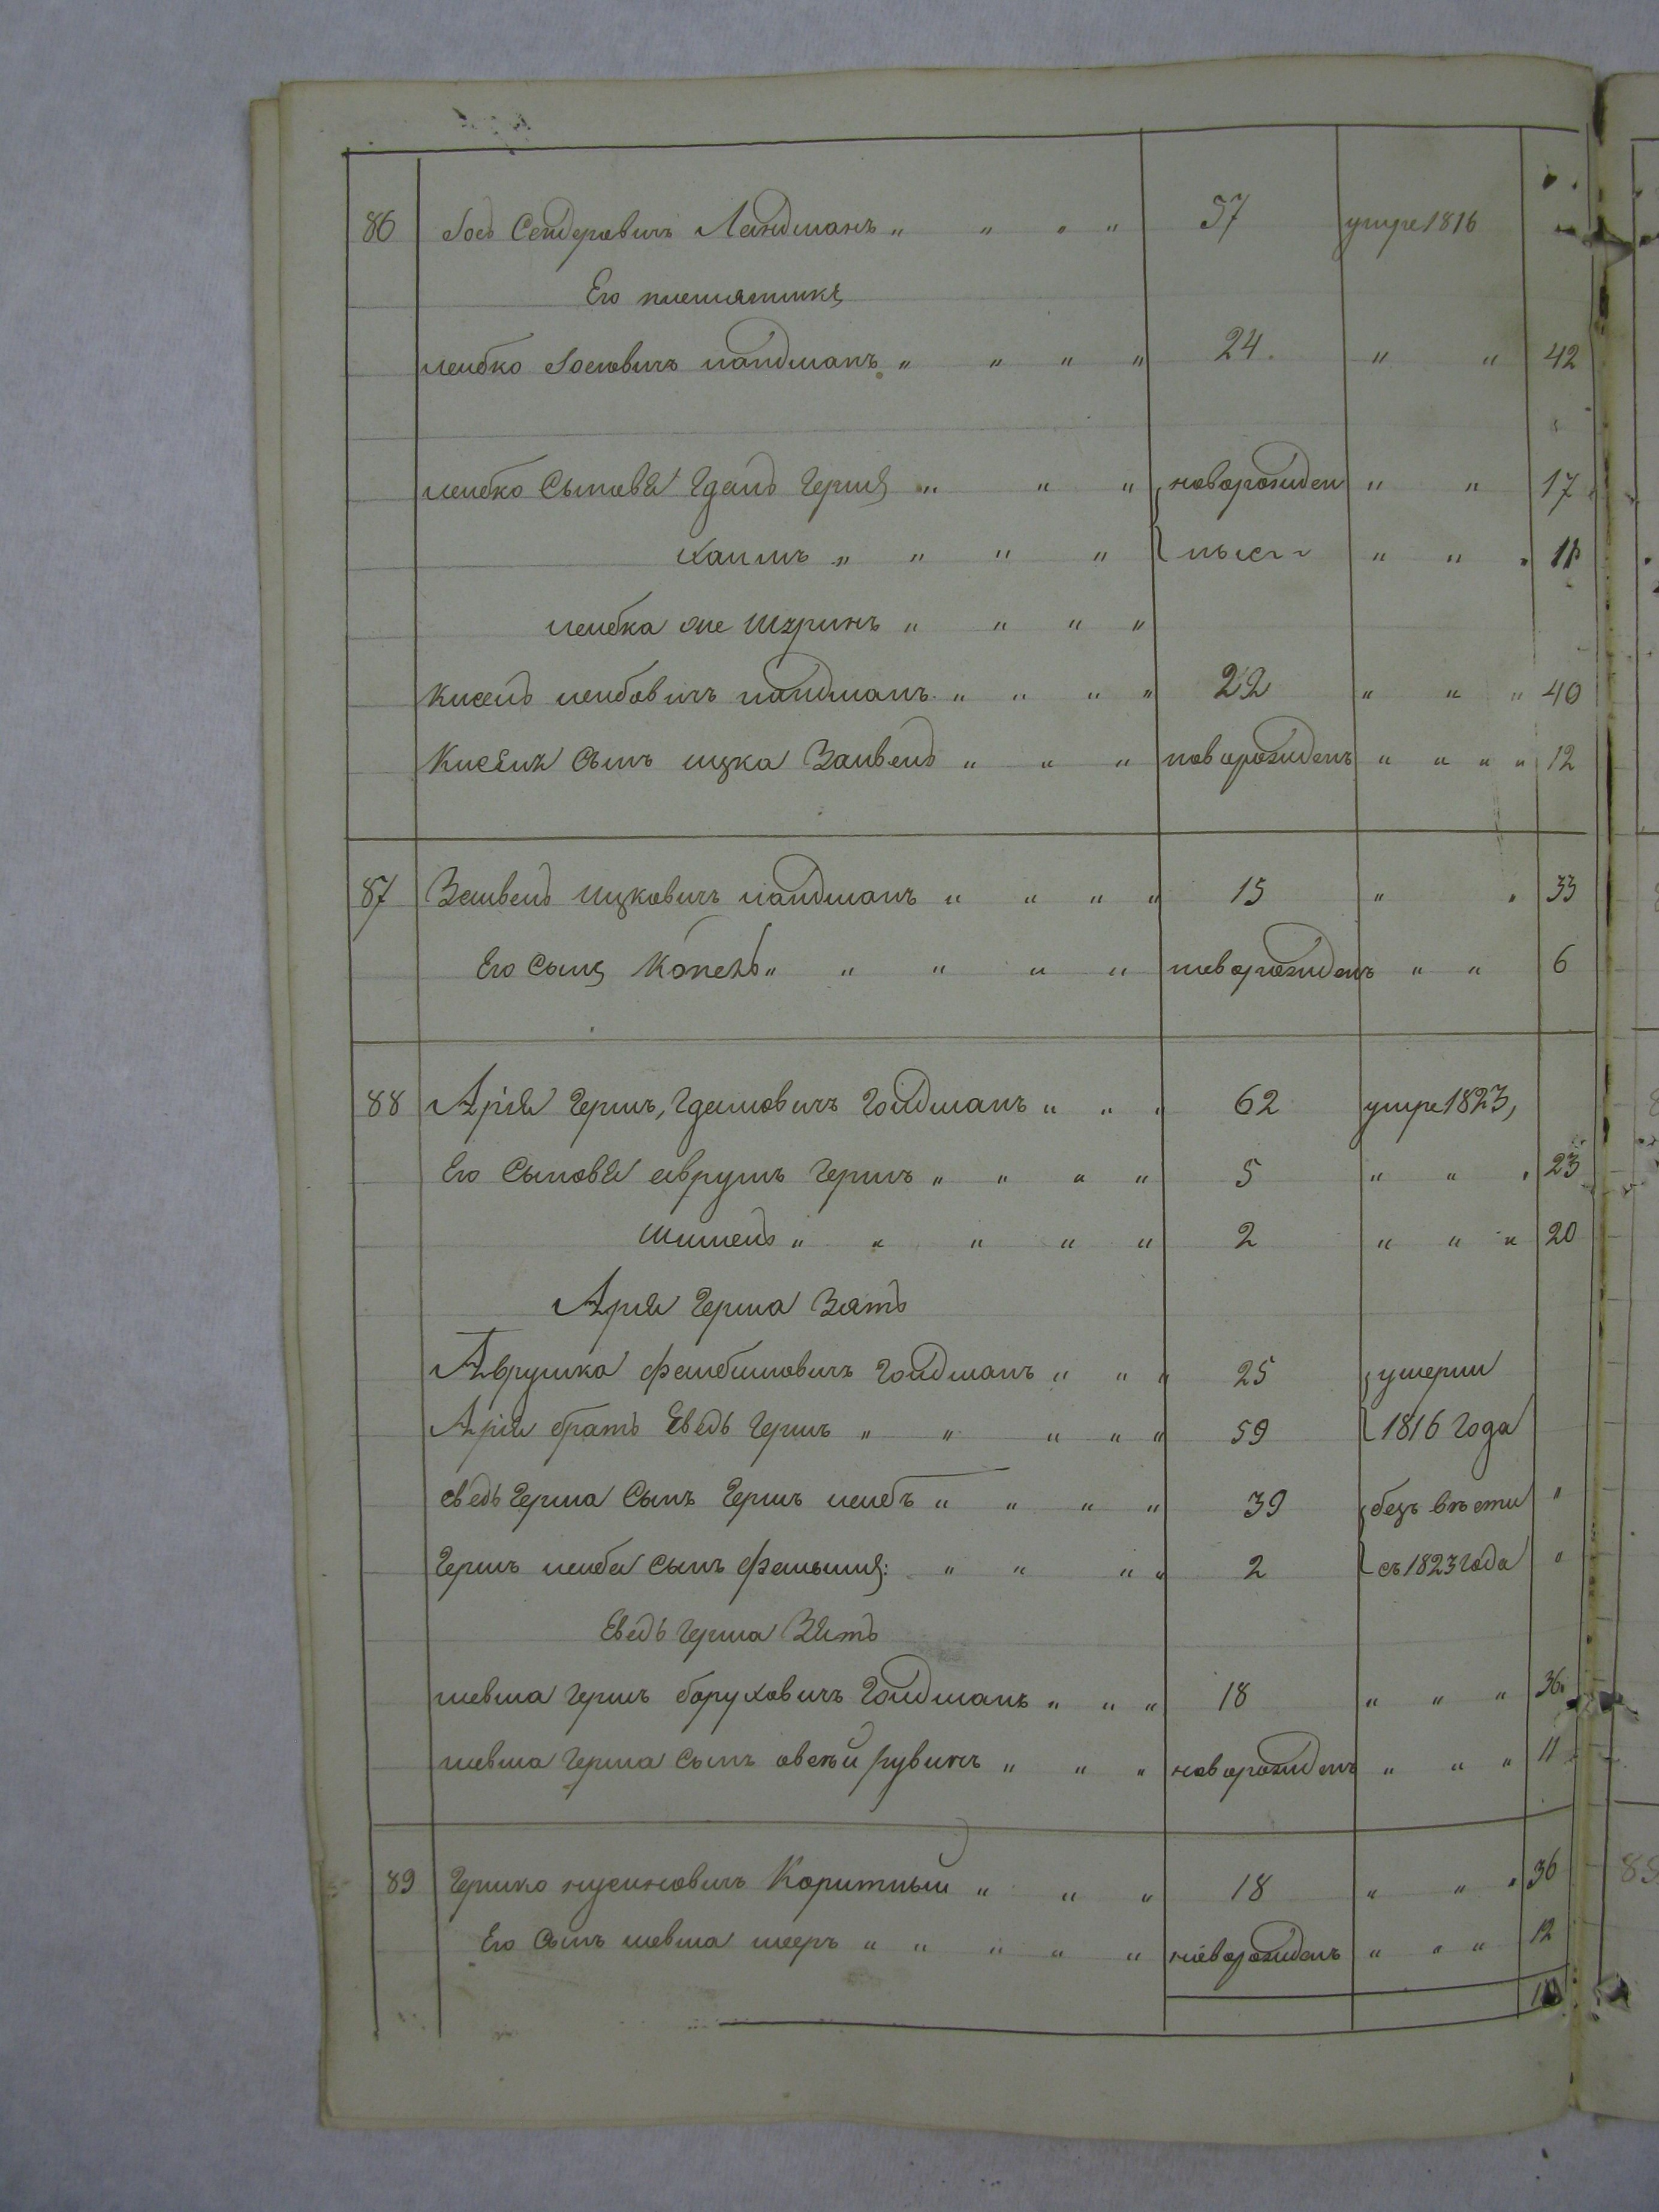 86 Іось Сендеровичъ Ландманъ " " " " 57 умре 1816
Его племянникъ
лейбко Іосіовичъ ландманъ " " " " 24. " " 42
лейбко Сыновья Гдаль Герша " " " новорожден " " 17
Хаимъ " " " " " " 11
лейбка же
Кисель лейбовичъ ландманъ " " " " 22 " " " 40
Киселя Сынъ ицка Зайвель " " " новорожденъ " " " " 12
87 Зайвель Ицковичъ ландманъ " " " " 15 " " 33
Его Сынъ Копель " " " " " новорожденъ " " 6
88 Арія Гершъ, Гдаловичъ Голдманъ " " " 62 умре 1823,
Его Сыновья аврумъ Гершъ " " " " 5 " " " 23
Шмиель " " " " " 2 " " " 20
Арія Герша Зять
Аврумка Фейбишовичъ Голдманъ " " " 25 умерли
Арія братъ Еведь Гершъ " " " " " 59 1816 Года
еведь Герша Сынъ Гершъ лейбъ " " " " 39 безъ вѣсти "
Гершъ лейба Сынъ " " " " 2 съ 1823 года "
Еведь Герша Зять
шевша Гершъ боруховичъ Голдманъ " " " 18 " " " 36
шевша Герша Сынъ овсѣй рувинъ " " " новорожденъ " " " 11
89 Гершко нусиновичъ Коритный " " " 18 " " " 36
Его Сынъ шевша мееръ " " " " " новорожденъ " " " 12